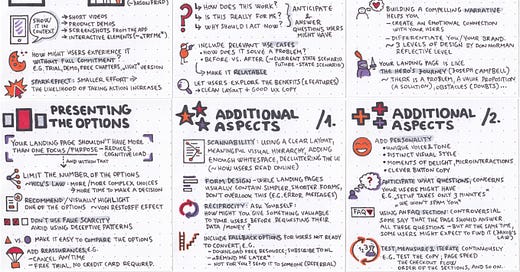 SHOW IT
IN
CONTEXT
→ SHORT VIDEOS
→ PRODUCT DEMOS
→ SCREENSHOTS FROM THE APP
→ INTERACTIVE ELEMENTS
HOW MIGHT USERS EXPERIENCE IT
WITHOUT FULL COMMITMENT?
E.G. TRIAL, DEMO, FREE CREDITS, "LIGHT" VERSION
SPARK EFFECT: SMALLER EFFORT →
THE LIKELIHOOD OF TAKING ACTION INCREASES
HOW DOES THIS WORK?
IS THIS REALLY FOR ME?
WHY SHOULD I ACT NOW?
ANTICIPATE
&
ANSWER
QUESTIONS USERS
MIGHT HAVE
INCLUDE RELEVANT USE CASES
- HOW DOES IT SOLVE A PROBLEM?
- BEFORE VS. AFTER (~CURRENT STATE SCENARIO
FUTURE-STATE SCENARIO)
↳ MAKE IT RELATABLE
LET USERS EXPLORE THE BENEFITS (& FEATURES)
→ CLEAN LAYOUT + GOOD UX COPY
BUILDING A COMPELLING NARRATIVE
HELPS YOU
- CREATE AN EMOTIONAL CONNECTION
WITH YOUR USERS
- DIFFERENTIATE YOU/YOUR BRAND
~ 3 LEVELS OF DESIGN BY DON NORMAN
REFLECTIVE LEVEL
YOUR LANDING PAGE IS LIKE
THE HERO'S JOURNEY (JOSEPH CAMPBELL)
~ THERE IS A PROBLEM, A VALUE PROPOSITION
(A SOLUTION), OBSTACLES (DOUBTS)...
PRESENTING
THE OPTIONS
YOUR LANDING PAGE SHOULDN'T HAVE MORE
THAN ONE FOCUS/PURPOSE → REDUCES
COGNITIVE LOAD
AND WITHIN THAT
LIMIT THE NUMBER OF THE OPTIONS
~ HICK'S LAW: MORE/MORE COMPLEX CHOICES
→ MORE TIME TO MAKE A DECISION
RECOMMEND/VISUALLY HIGHLIGHT
ONE OF THE OPTIONS ~ VON RESTORFF EFFECT
DON'T USE FALSE SCARCITY
AVOID USING DECEPTIVE PATTERNS
VS
MAKE IT EASY TO COMPARE THE OPTIONS
ADD REASSURANCES
- CANCEL ANYTIME
- FREE TRIAL, NO CREDIT CARD REQUIRED.
ADDITIONAL
ASPECTS
/1.
SCANNABILITY: USING A CLEAR LAYOUT,
MEANINGFUL VISUAL HIERARCHY, ADDING
ENOUGH WHITESPACE, DECLUTTERING THE UI
(~ HOW USERS READ ONLINE)
FORMS DESIGN: WHILE LANDING PAGES
USUALLY CONTAIN SIMPLER, SHORTER FORMS,
DON'T OVERLOOK THIS (E.G. ERROR MESSAGES)
RECIPROCITY: ASK YOURSELF:
HOW MIGHT YOU GIVE SOMETHING VALUABLE
TO YOUR USERS BEFORE REQUESTING THEIR
DATA / MONEY?
INCLUDE FALLBACK OPTIONS FOR USERS NOT READY
TO CONVERT, E.G.
- DOWNLOAD FREE RESOURCE/SUBSCRIBE TO NL
- REMIND ME LATER
- NOT FOR YOU? SEND IT TO SOMEONE (REFERRAL)
ADDITIONAL
ASPECTS
/2.
ADD PERSONALITY
• UNIQUE VOICE & TONE
• DISTINCT VISUAL STYLE
• MOMENTS OF DELIGHT, MICROINTERACTIONS
• CLEVER BUTTON COPY
ANTICIPATE WHAT QUESTIONS, CONCERNS
YOUR USERS MIGHT HAVE
E.G. "SETUP TAKES ONLY 3 MINUTES"
"WE WON'T SPAM YOU"
FAQ
USING AN FAQ SECTION: CONTROVERSIAL
SOME SAY THAT THE PAGE SHOULD ANSWER
ALL THESE QUESTIONS - BUT AT THE SAME TIME,
SOME USERS MIGHT EXPECT TO FIND IT (JAKOB'S
LAW)
TEST, MEASURE & ITERATE CONTINUOUSLY
E.G. TEST THE COPY, PAGE SPEED
THE CHECKOUT FLOW
ORDER OF THE SECTIONS, AND SO ON.